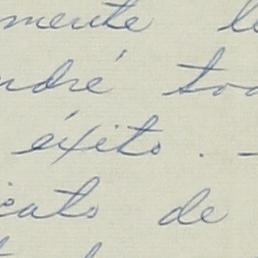 mente l
ndré tod
éxito. -
icato de